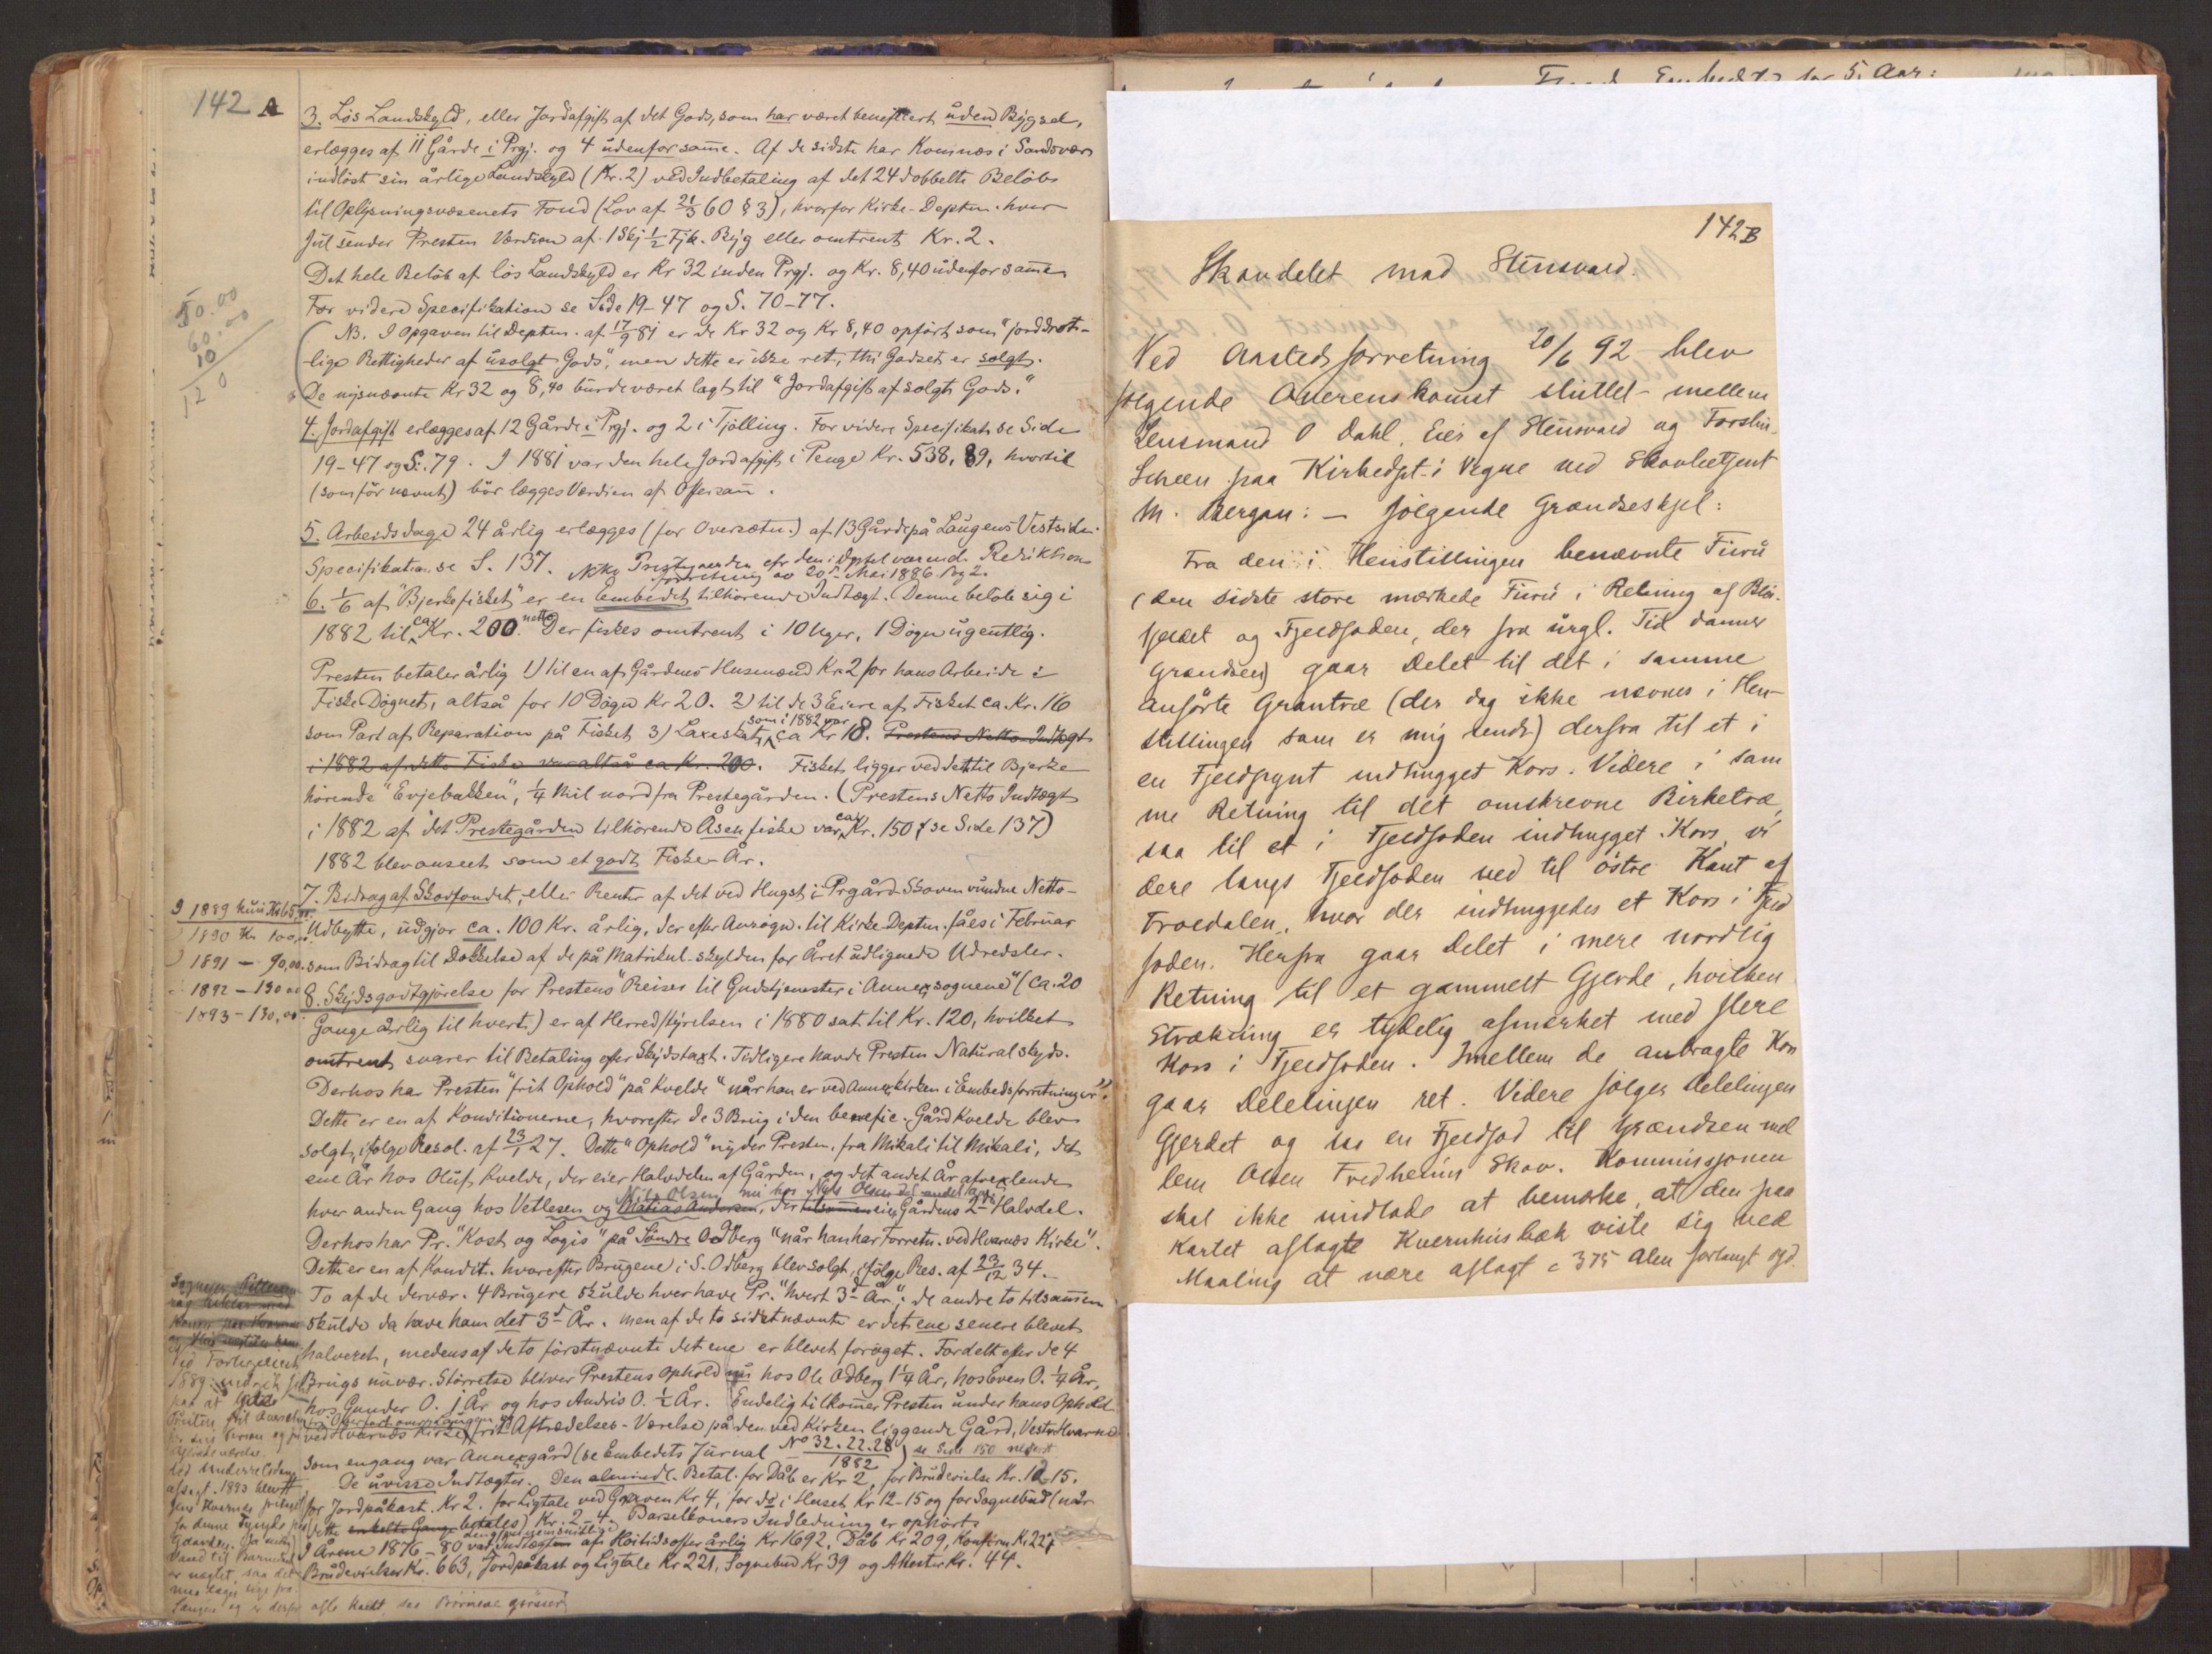 142 A
3. Løs Landskyld, eller Jordafgift af det Gods, som har været beneficert uden Bygsel,
erlægges af 11 Gårde i Prgj. og 4 udenfor samme. Af de sidste har Komnæs i Sandsvær
indløst sin årlige Landskyld (Kr. 2) ved Indbetaling af det 24 dobbelte Beløb
til Oplysningsvæsenets Fond (Lov af 21/3 60 § 3), hvorfor Kirke-Deptm. hver
Jul sender Presten Værdien af 1 Skj. 1/2 Fjk. Byg eller omtrent Kr. 2.
Det hele Beløb af løs Landskyld er Kr 32 inden Prgj. og Kr. 8,40 udenfor samme
For videre Specifikation se Side 19-47 og S. 70-77.
NB. I Opgaven til Deptm. af 17/9 81 er de Kr 32 og Kr 8,40 opført som "jorddrot-
lige Rettigheder af usolgt Gods", men dette er ikke ret, thi Godset er solgt.
De nysnævnte Kr 32 og 8,40 burde været lagt til "Jordafgift af solgt Gods."
4. Jordafgift erlægges af 12 Gårde i Prgj. og 2 i Tjølling. For videre Specifikat. se Side
19-47 og S. 79. I 1881 var den hele Jordafgift i Penge Kr. 538,89, hvortil
(som før nævnt) bør lægges Værdien af
5. Arbeidsdage 24 årlig erlægges (for Oversætn.) af 13 Gårde på Laugens Vestside.
Specifikation se S. 137.
6. 1/6 af "Bjerkefisket" er en Embedet tilhørende Indtægt. Denne beløb sig i
1882 til ca Kr. 200 netto. Der fiskes omtrent i 10 Uger, 1 Døgn ugentlig.
Presten betaler årlig 1) til en af Gårdens Husmænd Kr. 2 for hans Arbeide i
Fiske Døgnet, altså for 10 Døgn Kr 20. 2) til de 3 Eiere af Fisket ca. Kr. 16
som Part af Reparation på Fisket 3) Laxeskat, som i 1882 var ca Kr 18. Prestens Netto-Indtægt
i 1882 af dette Fiske var altså ca Kr. 200. Fisket ligger ved det til Bjerke
hørende "Evjebakken", 1/4 Mil nord fra Prestegården. (Prestens Netto Indtægt
i 1882 af det Prestegården tilhørende Åsenfiske var ca Kr. 150 se Side 137)
1882 blev anseet som et godt Fiske-År.
7. Bidrag af Skovfondet, eller Renter af det ved Hugst i Prgård-Skoven vundne Netto-
Udbytte, udgjør ca. 100 Kr. årlig, der efter Ansøgn. til Kirke Deptm. fåes i Februar
som Bidrag til Dækkelse af de på Matrikul-skylden for Året udlignede Udredsler.
I 1889 kun Kr 65,
1890 Kr 100,
1891 — 90,00
1892 — 130
1893 — 130,
8. Skydsgodtgjørelse for Prestens "Reiser til Gudstjenester i Annexsognene" (ca. 20
Gange årlig til hvert) er af Herredstyrelsen i 1880 sat til Kr. 120, hvilket
omtrent svarer til Betaling efter Skydstaxt. Tidligere havde Presten Naturalskyds.
Derhos har Presten "frit Ophold" på Kvelde "når han er ved Annexkirken i Embedsforretninger".
Dette er en af Konditionerne, hvorefter de 3 Brug i den benefic. Gård Kvelde blev
solgt, ifølge Resol. af 23/1 27. Dette "Ophold" nyder Presten, fra Mikali til Mikali, det
ene År hos Oluf Kvelde, der eier Halvdelen af Gården, og det andet År afvexlende
hver anden Gang hos Vetlesen og Mathias Andersen, der eier Gårdens 2den Halvdel.
Derhos har Pr. "Kost og Logis" på Søndre Odberg "når han har Forretn. ved Hvarnæs Kirke".
Dette er en af Kondit. hvorefter Brugene i S. Odberg blev solgt, ifølge Res. af 23/12 34.
To af de dervær. 4 Brugere skulde hver have Pr. "hvert 3die År"; de andre to tilsammen
skulde da have ham det 3die År. Men af de to sidstnævnte er det ene senere blevet
halveret, medens af de to førstnævnte det ene er blevet forøget. Fordelt efter de 4
Brugs nuvær. Størrelse bliver Prestens Ophold nu hos Ole Odberg 1 1/4 År, hos Even O. 1/4 År,
hos Gunder O. 1 År og hos Andris O. 1/2 År. Endelig tilkommer Presten under hans Ophold
ved Hvarnæs Kirke frit Aftrædelses-Værelse på den ved Kirken liggende Gård, Vestre Hvarnæs
som engang var Annexgård (se Embedets Journal No 32.22.28/1882) se Side 150 nederst
De uvisse Indtægter. Den almindl. Betal. for Dåb er Kr 2, for Brudevielse Kr. 12-15.
for Jordpåkast. Kr 2. for Ligtale ved Graven Kr 4, for do i Huset Kr 12-15 og for Sognebud (når
dette enkelte Gange betales) Kr. 2-4. Barselkoners Indledning er ophørt.
I Årene 1876-80 var den gjennemsnitlige Indtægten af Høitidsoffer årlig Kr 1692, Dåb Kr 209, Konfirm Kr 221
Brudevielser Kr. 663, Jordpåkast og Ligtale Kr 221, Sognebud Kr 39 og Attester Kr. 44.
142 B
Skovdelet mod Stensvard.
Ved Aastedsforretning 20/6 92 blev
følgende Overenskomst sluttet mellem
Lensmand O Dahl, Eier af Stensvard og Forstm.
Scheen paa Kirkedpt. i Vegne ved Skovbetjent
M. Bergan: — følgende Grændseskjel:
Fra den i Henstillingen benævnte Furu
(den sidste store mærkede Furu i Retning af Blåi-
fjeldet og Fjeldfoden, der fra urgl. Tid danner
Grændsen) gaar Delet til det i samme
anførte Grantræ (der dog ikke nævnes i Hen-
stillingen som er mig sendt) derfra til et i
en Fjeldpynt indhugget Kors. Videre i sam
me Retning til det omskrevne Birketræ,
saa til et i Fjeldfoden indhugget Kors, vi
dere langs Fjeldfoden ned til østre Kant af
Froedalen, hvor der indhuggedes et Kors i Fjeld
foden. Herfra gaar Delet i mere nordlig
Retning til et gammelt Gjerde, hvilken
Strækning er tydelig afmærket med flere
Kors i Fjeldfoden. Imellem de anbragte Kors
gaar Delelinjen ret. Videre følger Delelinjen
Gjerdet og saa en Fjeldfod til Grændsen mel
lem Olsen Fredheims Skov. Kommissjonen
skal ikke undlade at bemærke, at den paa
Kartet aflagte Kvernhusbæk viste sig ved
Maaling at være aflagt c 375 Alen forlangt syd.